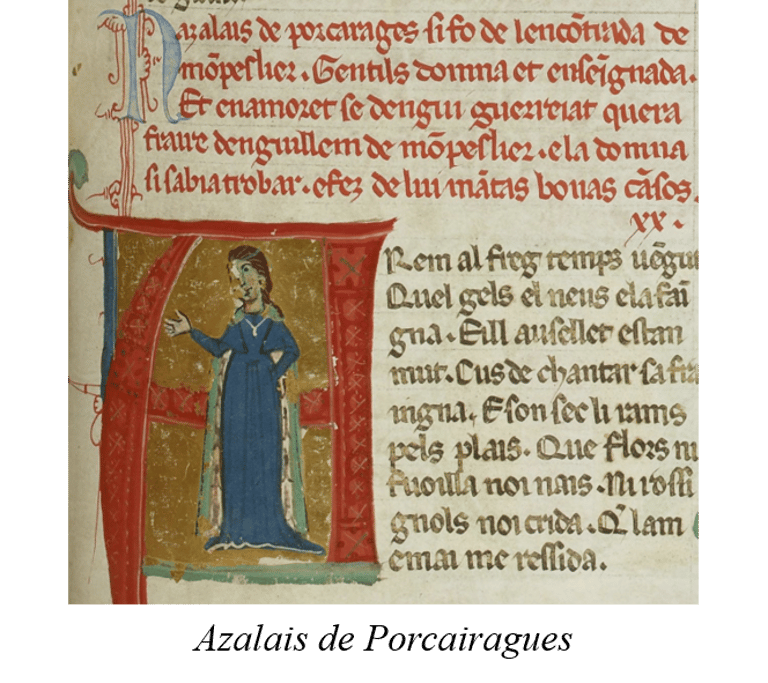 Nazalais de porcarages si fo de lencõtrada de
mõpeslier. Gentils domna et enseignada.
Et enamoret se dengui guerreiat quera
fraire denguillem de mõpeslier. ela domna
si sabia trobar. efez de lui mãtas bonas cãsos.
xx.
ARem al freg temps uẽgu
Quel gels el neus ela fai
gna. Eill aucellet estan
mut. Cus de chantar sa fra
ingna. E son sec li rams
pels plais. Que flors ni
fuoilla noi nais. Ni rossi
gnols noi crida. Q̃ lam
emai me ressida.
Azalais de Porcairagues